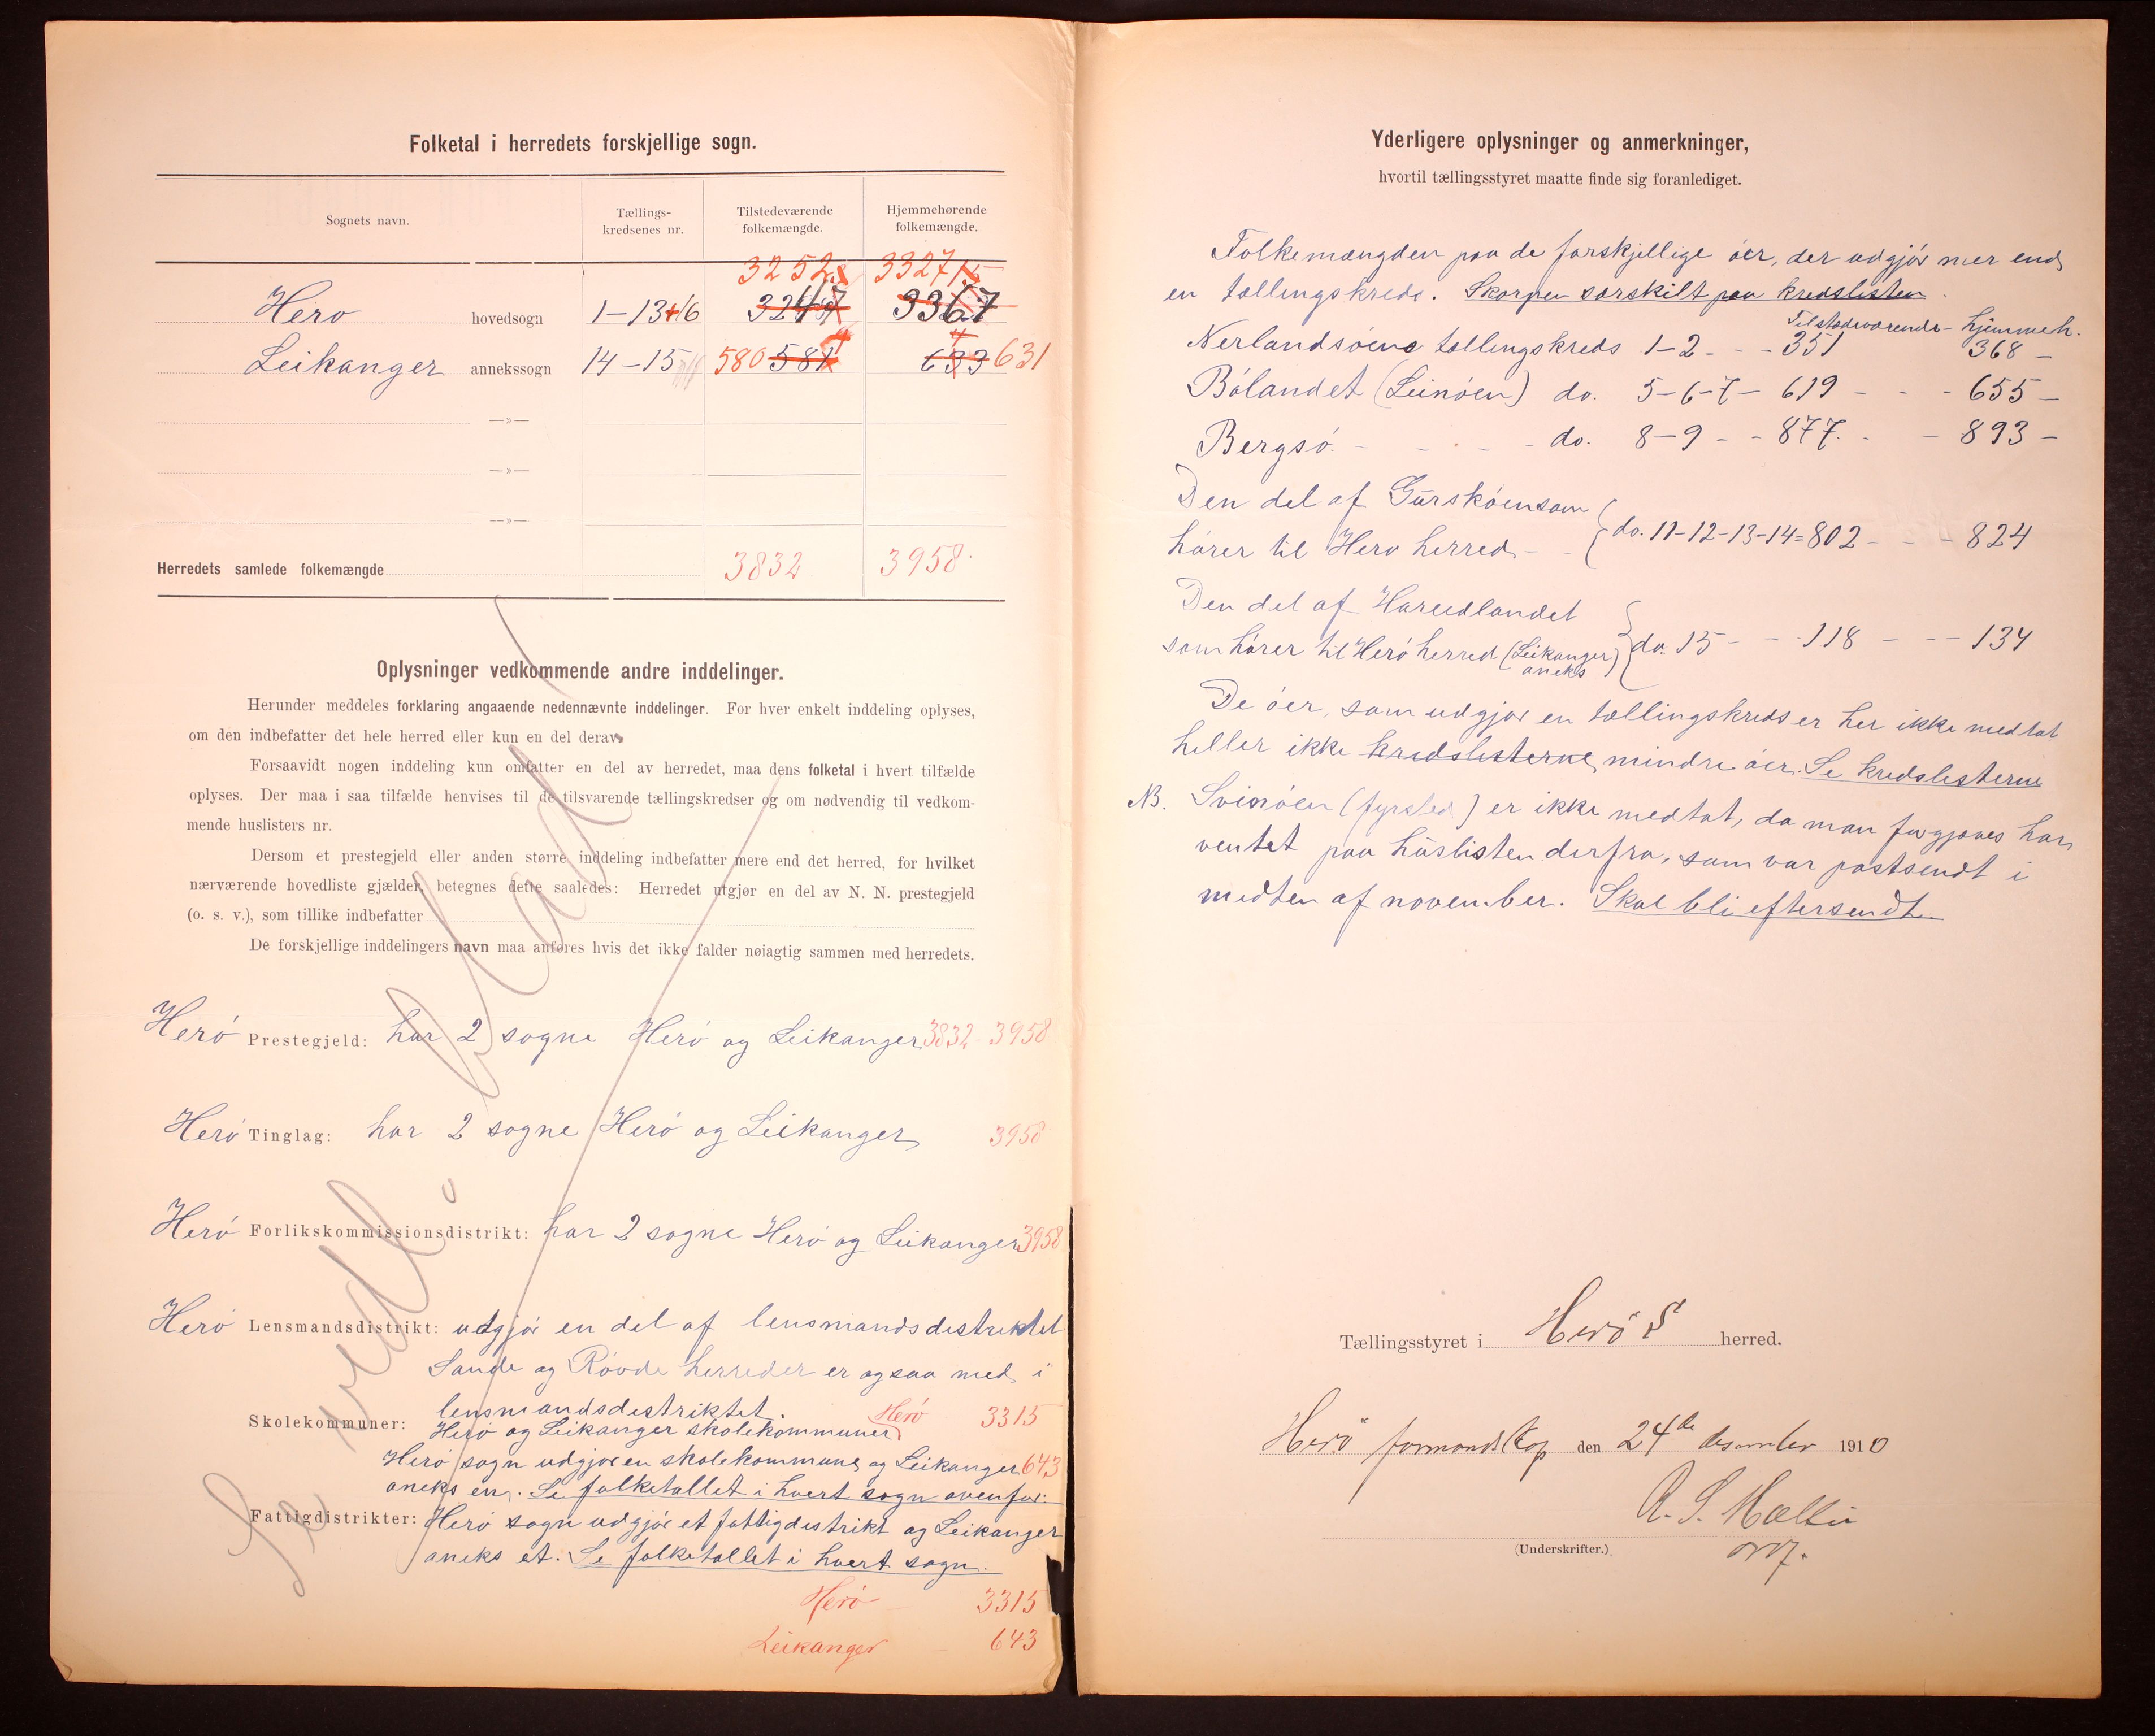 Folketal i herredets forskjellige sogn.
Sognets navn.
Tællings-
kredsenes nr.
Tilstedeværende
folkemængde.
Hjemmehørende
folkemængde.
3252 3327
Herø hovedsogn 1-13+16 3247 3367
Leikanger annekssogn 14-15 580 581 633 631
—»—
—»—
—»—
Herredets samlede folkemængde 3832 3958
Oplysninger vedkommende andre inddelinger.
Herunder meddeles forklaring angaaende nedennævnte inddelinger. For hver enkelt inddeling oplyses,
om den indbefatter det hele herred eller kun en del derav.
Forsaavidt nogen inddeling kun omfatter en del av herredet, maa dens folketal i hvert tilfælde
oplyses. Der maa i saa tilfælde henvises til de tilsvarende tællingskredser og om nødvendig til vedkom-
mende huslisters nr.
Dersom et prestegjeld eller anden større inddeling indbefatter mere end det herred, for hvilket
nærværende hovedliste gjælder, betegnes dette saaledes: Herredet utgjør en del av N. N. prestegjeld
(o. s. v.), som tillike indbefatter
De forskjellige inddelingers navn maa anføres hvis det ikke falder nøiagtig sammen med herredets.
Herö Prestegjeld: har 2 sogne Herö og Leikanger 3832 - 3958
Herö Tinglag: har 2 sogne Herö og Leikanger 3958
Herö Forlikskommissionsdistrikt: har 2 sogne Herö og Leikanger 3958
Herö Lensmandsdistrikt: udgjör en del af lensmandsdistriktet
Sande og Rövde herreder er ogsaa med i
lensmandsdistriktet.
Skolekommuner: Herö og Leikanger skolekommuner Herö 3315
Herö sogn udgjör en skolekommune og Leikanger 643
aneks en. Se folketallet i hvert sogn ovenfor.
Fattigdistrikter: Herö sogn udgjör et fattigdistrikt og Leikanger
aneks et. Se folketallet i hvert sogn.
Herö 3315
Leikanger - 643
Se vedl. blad!
Yderligere oplysninger og anmerkninger,
hvortil tællingsstyret maatte finde sig foranlediget.
Folkemængden paa de forskjellige öer, der udgjör mer end
en tællingskreds. Skorpen særskilt paa kredslisten.
Tilstedeværende - hjemmeh.
Nerlandsöens tællingskreds 1-2 - - 351 368 -
Bölandet (Leinöen) do. 5-6-7 - 619 - - - 655 -
Bergsö. - - - - do. 8-9 - - 877. - - 893 -
Den del af Gursköen som
hörer til Herö herred - - do. 11-12-13-14 = 802 - - - 824
Den del af Hareidlandet
som hörer til Herö herred (Leikanger aneks) do. 15 - - - 118 - - - 134
De öer, som udgjör en tællingskreds er her ikke medtat
heller ikke kredslisterne mindre öer. Se kredslisterne
NB. Svinöen (fyrsted) er ikke medtat, da man forgjæves har
ventet paa huslisten derfra, som var postsendt i
midten af november. Skal bli eftersendt.
Tællingsstyret i Herö S herred.
Herö formandskap den 24de desember 1910
(Underskrifter.)